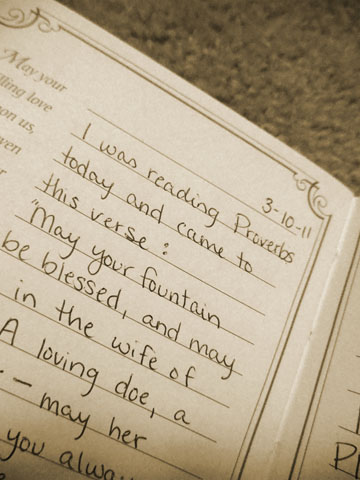 May your
love
on us,
3-10-11
I was reading Proverbs
today and came to
this verse:
"May your fountain
be blessed, and may
in the wife of
A loving doe, a
- may her
you